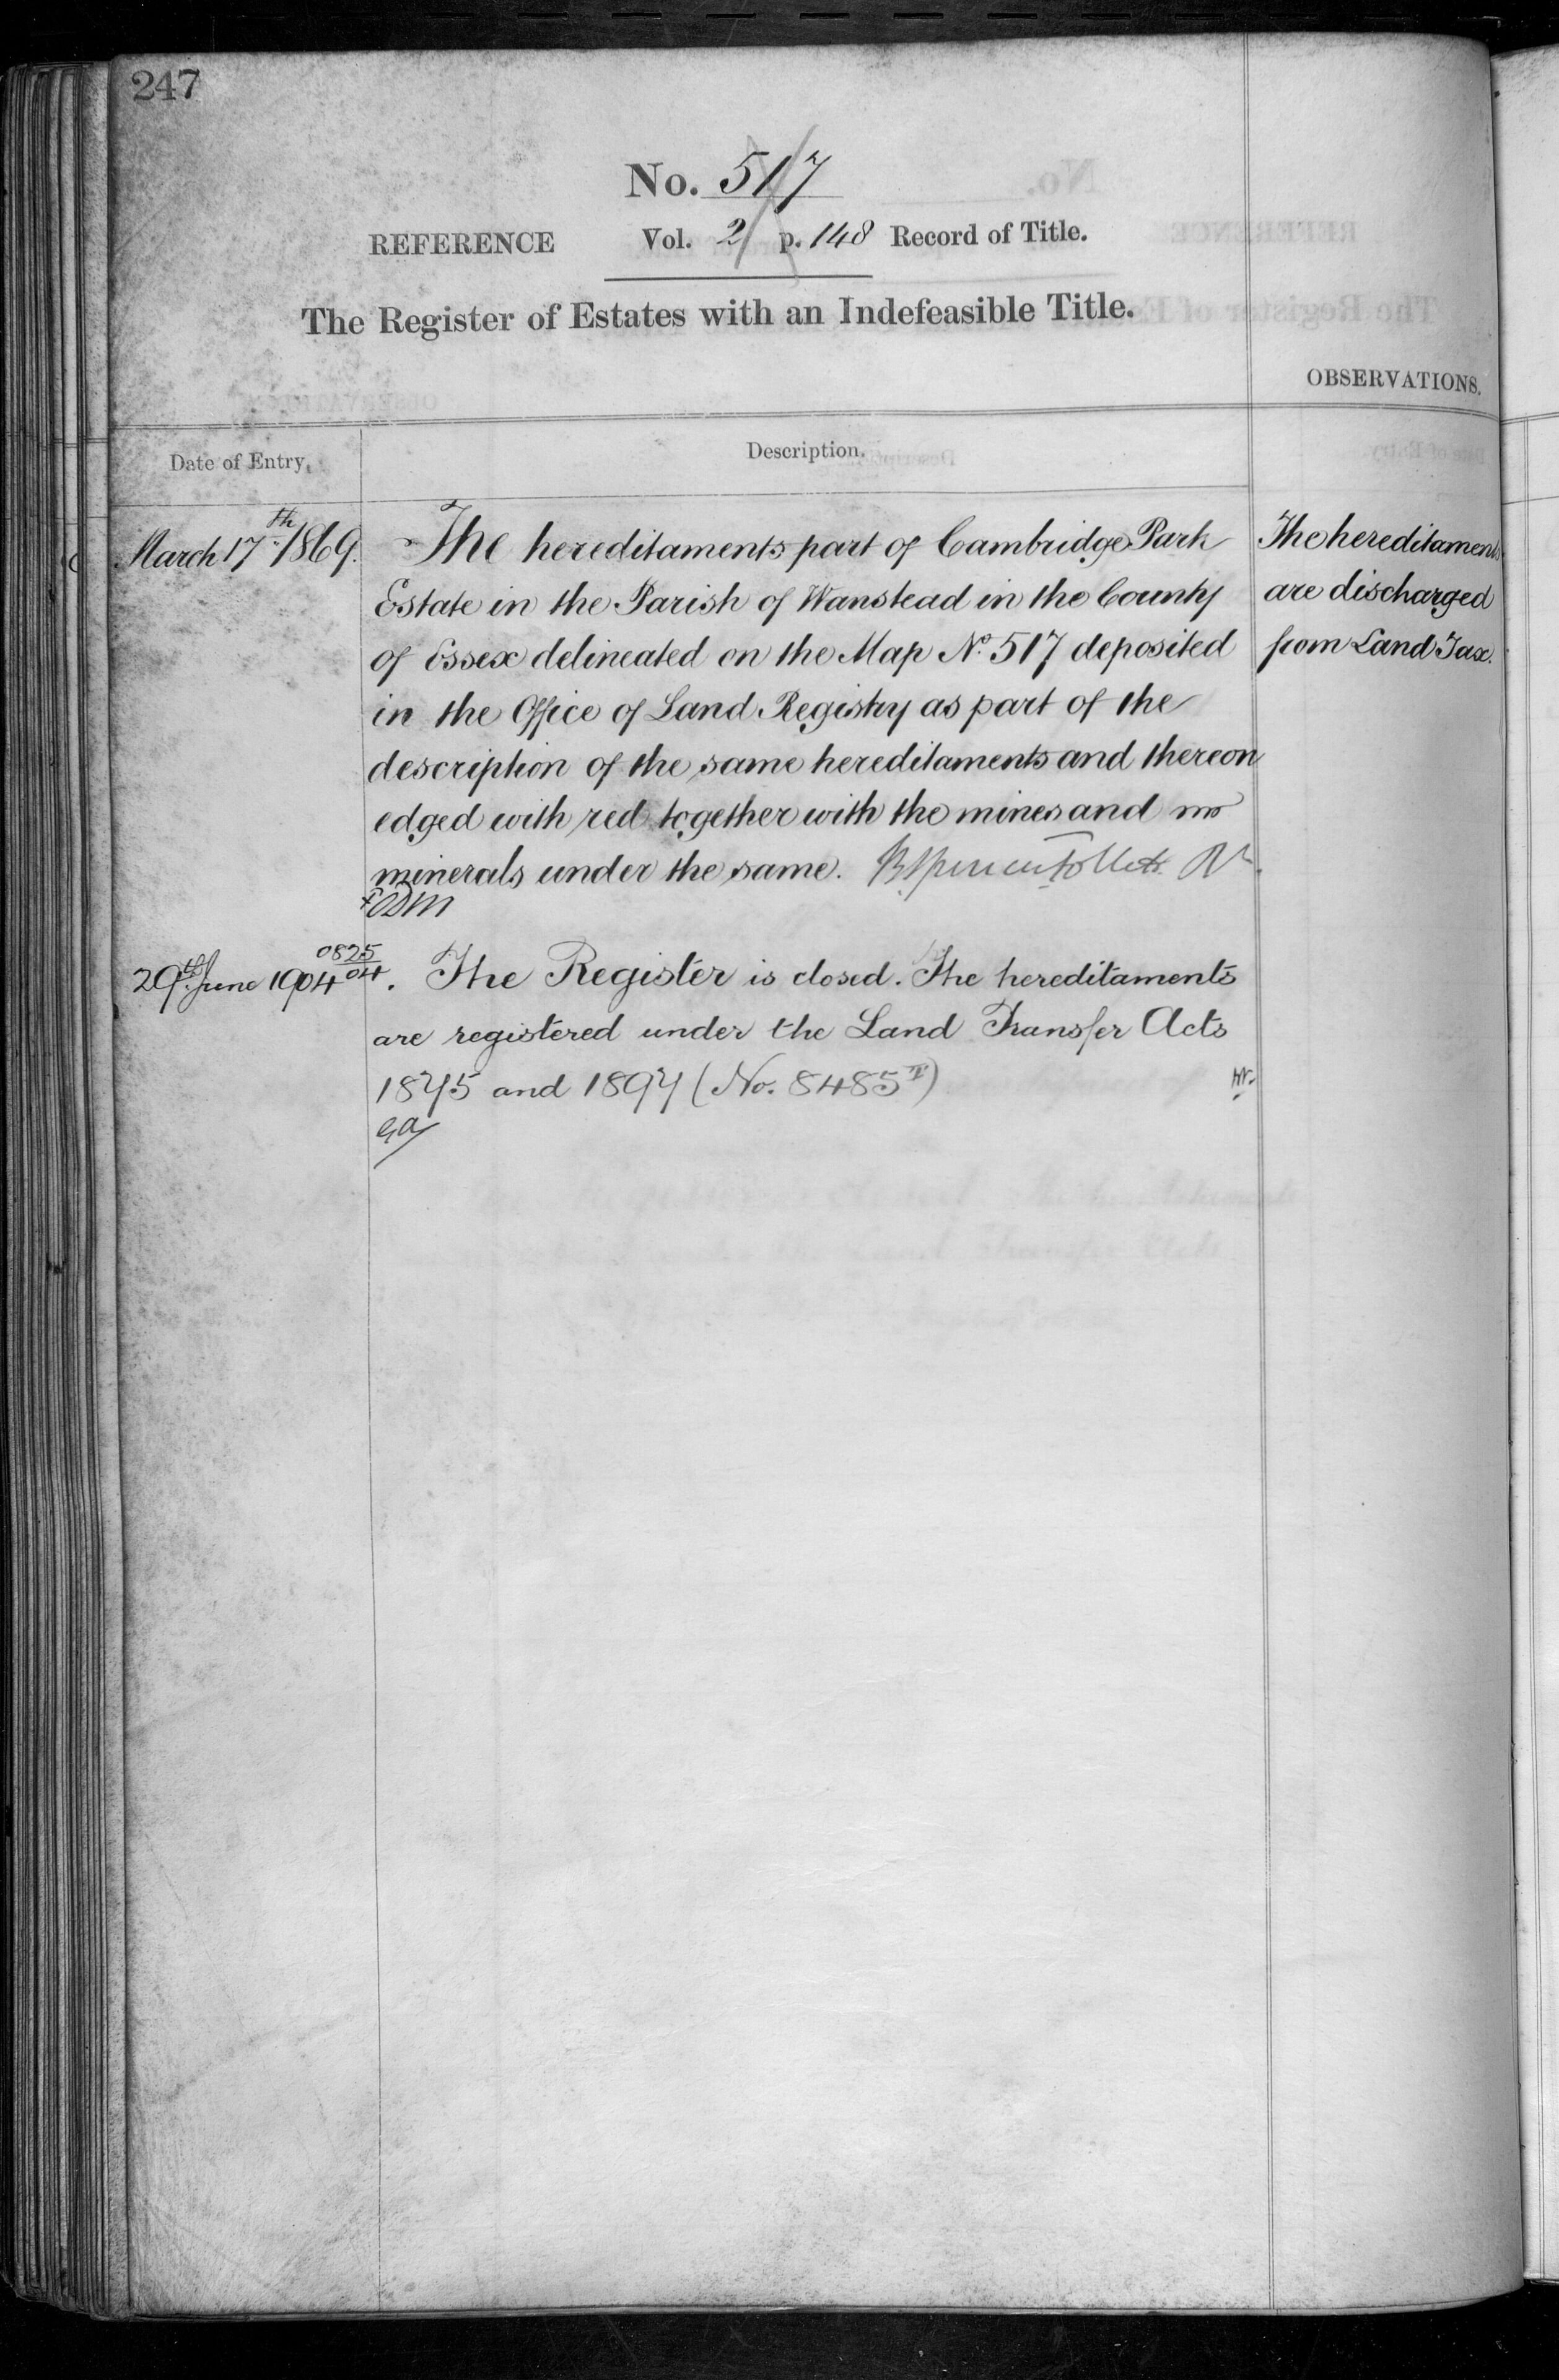 247
No. 517
REFERENCE Vol. 2 p. 148 Record of Title.
The Register of Estates with an Indefeasible Title.
OBSERVATIONS.
Date of Entry. Description.
March 17th 1869. The hereditaments part of Cambridge Park The hereditaments
Estate in the Parish of Wanstead in the County are discharged
of Essex delineated on the Map No. 517 deposited from Land Tax.
in the Office of Land Registry as part of the
description of the same hereditaments and thereon
edged with red together with the mines and
minerals under the same.
0825
29th June 1904 04. The Register is closed. The hereditaments
are registered under the Land Transfer Acts
1875 and 1897 (No. 8485)